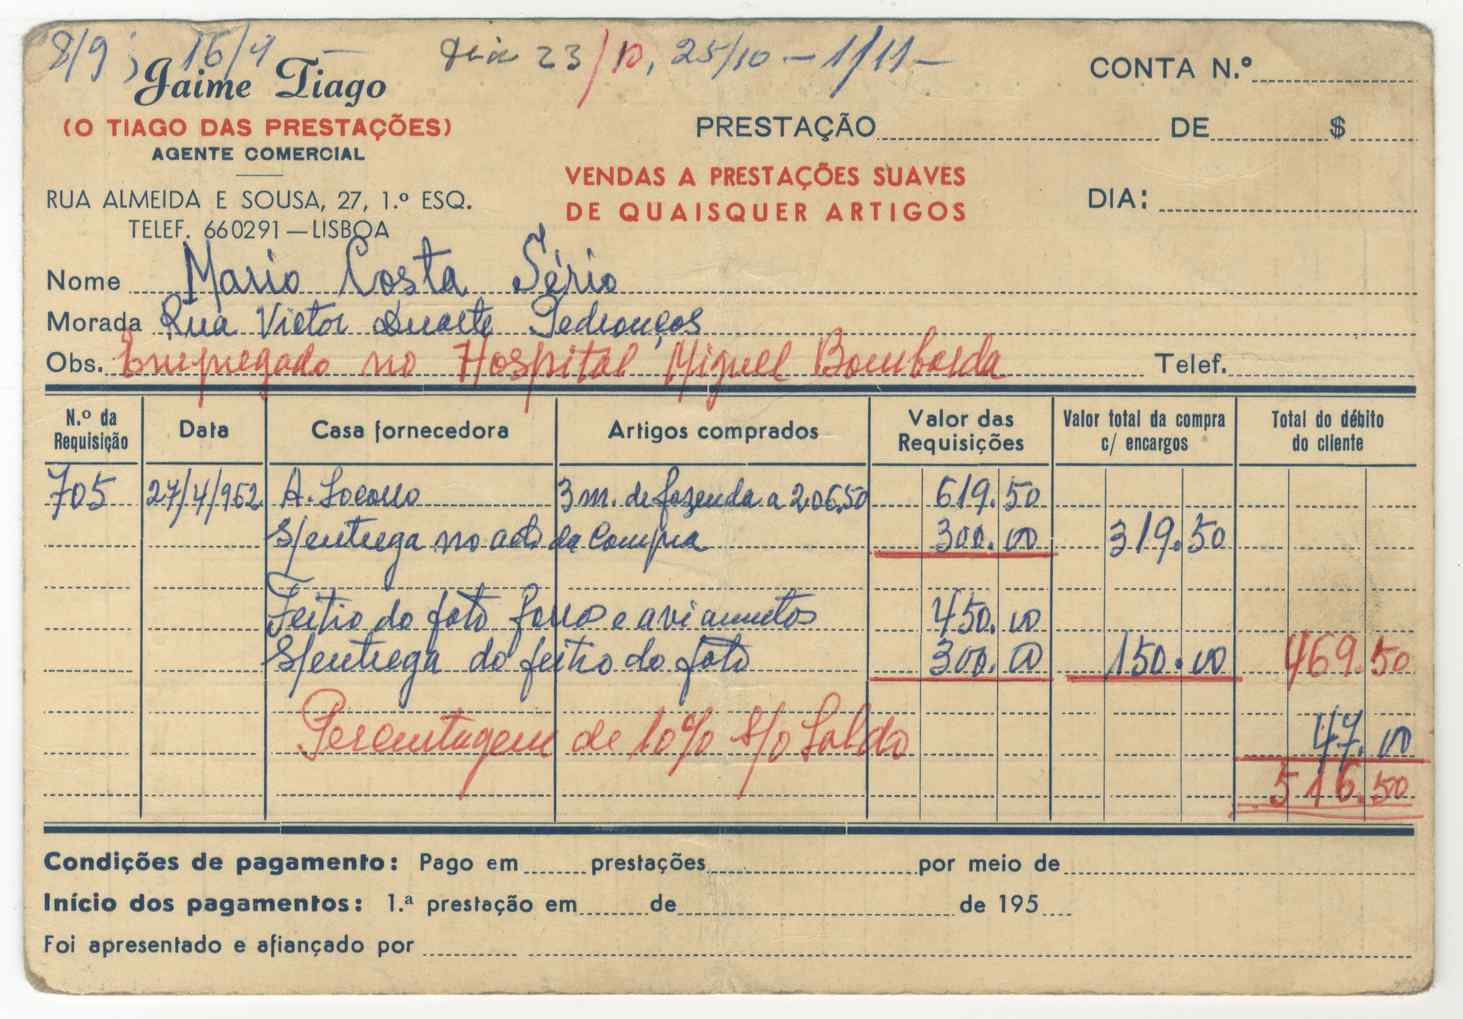 8/9; 16/9 — Dia 23/10, 25/10 — 1/11 —
Jaime Tiago
(O TIAGO DAS PRESTAÇÕES)
AGENTE COMERCIAL
RUA ALMEIDA E SOUSA, 27, 1.º ESQ.
TELEF. 660291 — LISBOA
CONTA N.º
PRESTAÇÃO DE $
VENDAS A PRESTAÇÕES SUAVES
DE QUAISQUER ARTIGOS
DIA:
Nome Mario Costa Sério
Morada Rua Victor Duarte Pedrouços
Obs. Empregado no Hospital Miguel Bombarda Telef.
N.º da Requisição Data Casa fornecedora Artigos comprados Valor das Requisições Valor total da compra c/ encargos Total do débito do cliente
705 27/4/962 A. Socorro 3 m. de fazenda a 206,50 619.50
S/entrega no acto da Compra 300.00 319.50
Feitio do fato forro e aviamentos 450.00
S/entrega do feitio do fato 300.00 150.00 469.50
Percentagem de 10% S/o Saldo 47.00
516.50
Condições de pagamento: Pago em prestações por meio de
Início dos pagamentos: 1.ª prestação em de de 195
Foi apresentado e afiançado por